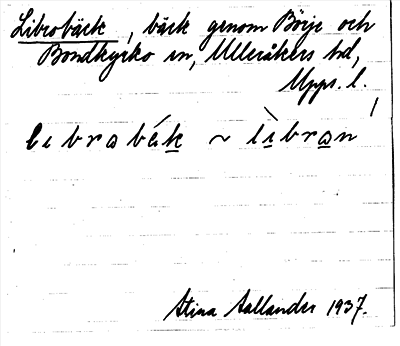 Librobäck, bäck genom Börje och
Bondkyrko sn, Ulleråkers hd,
Upps. l.
librabäk ~ lìbran
Stina Aallander 1937.